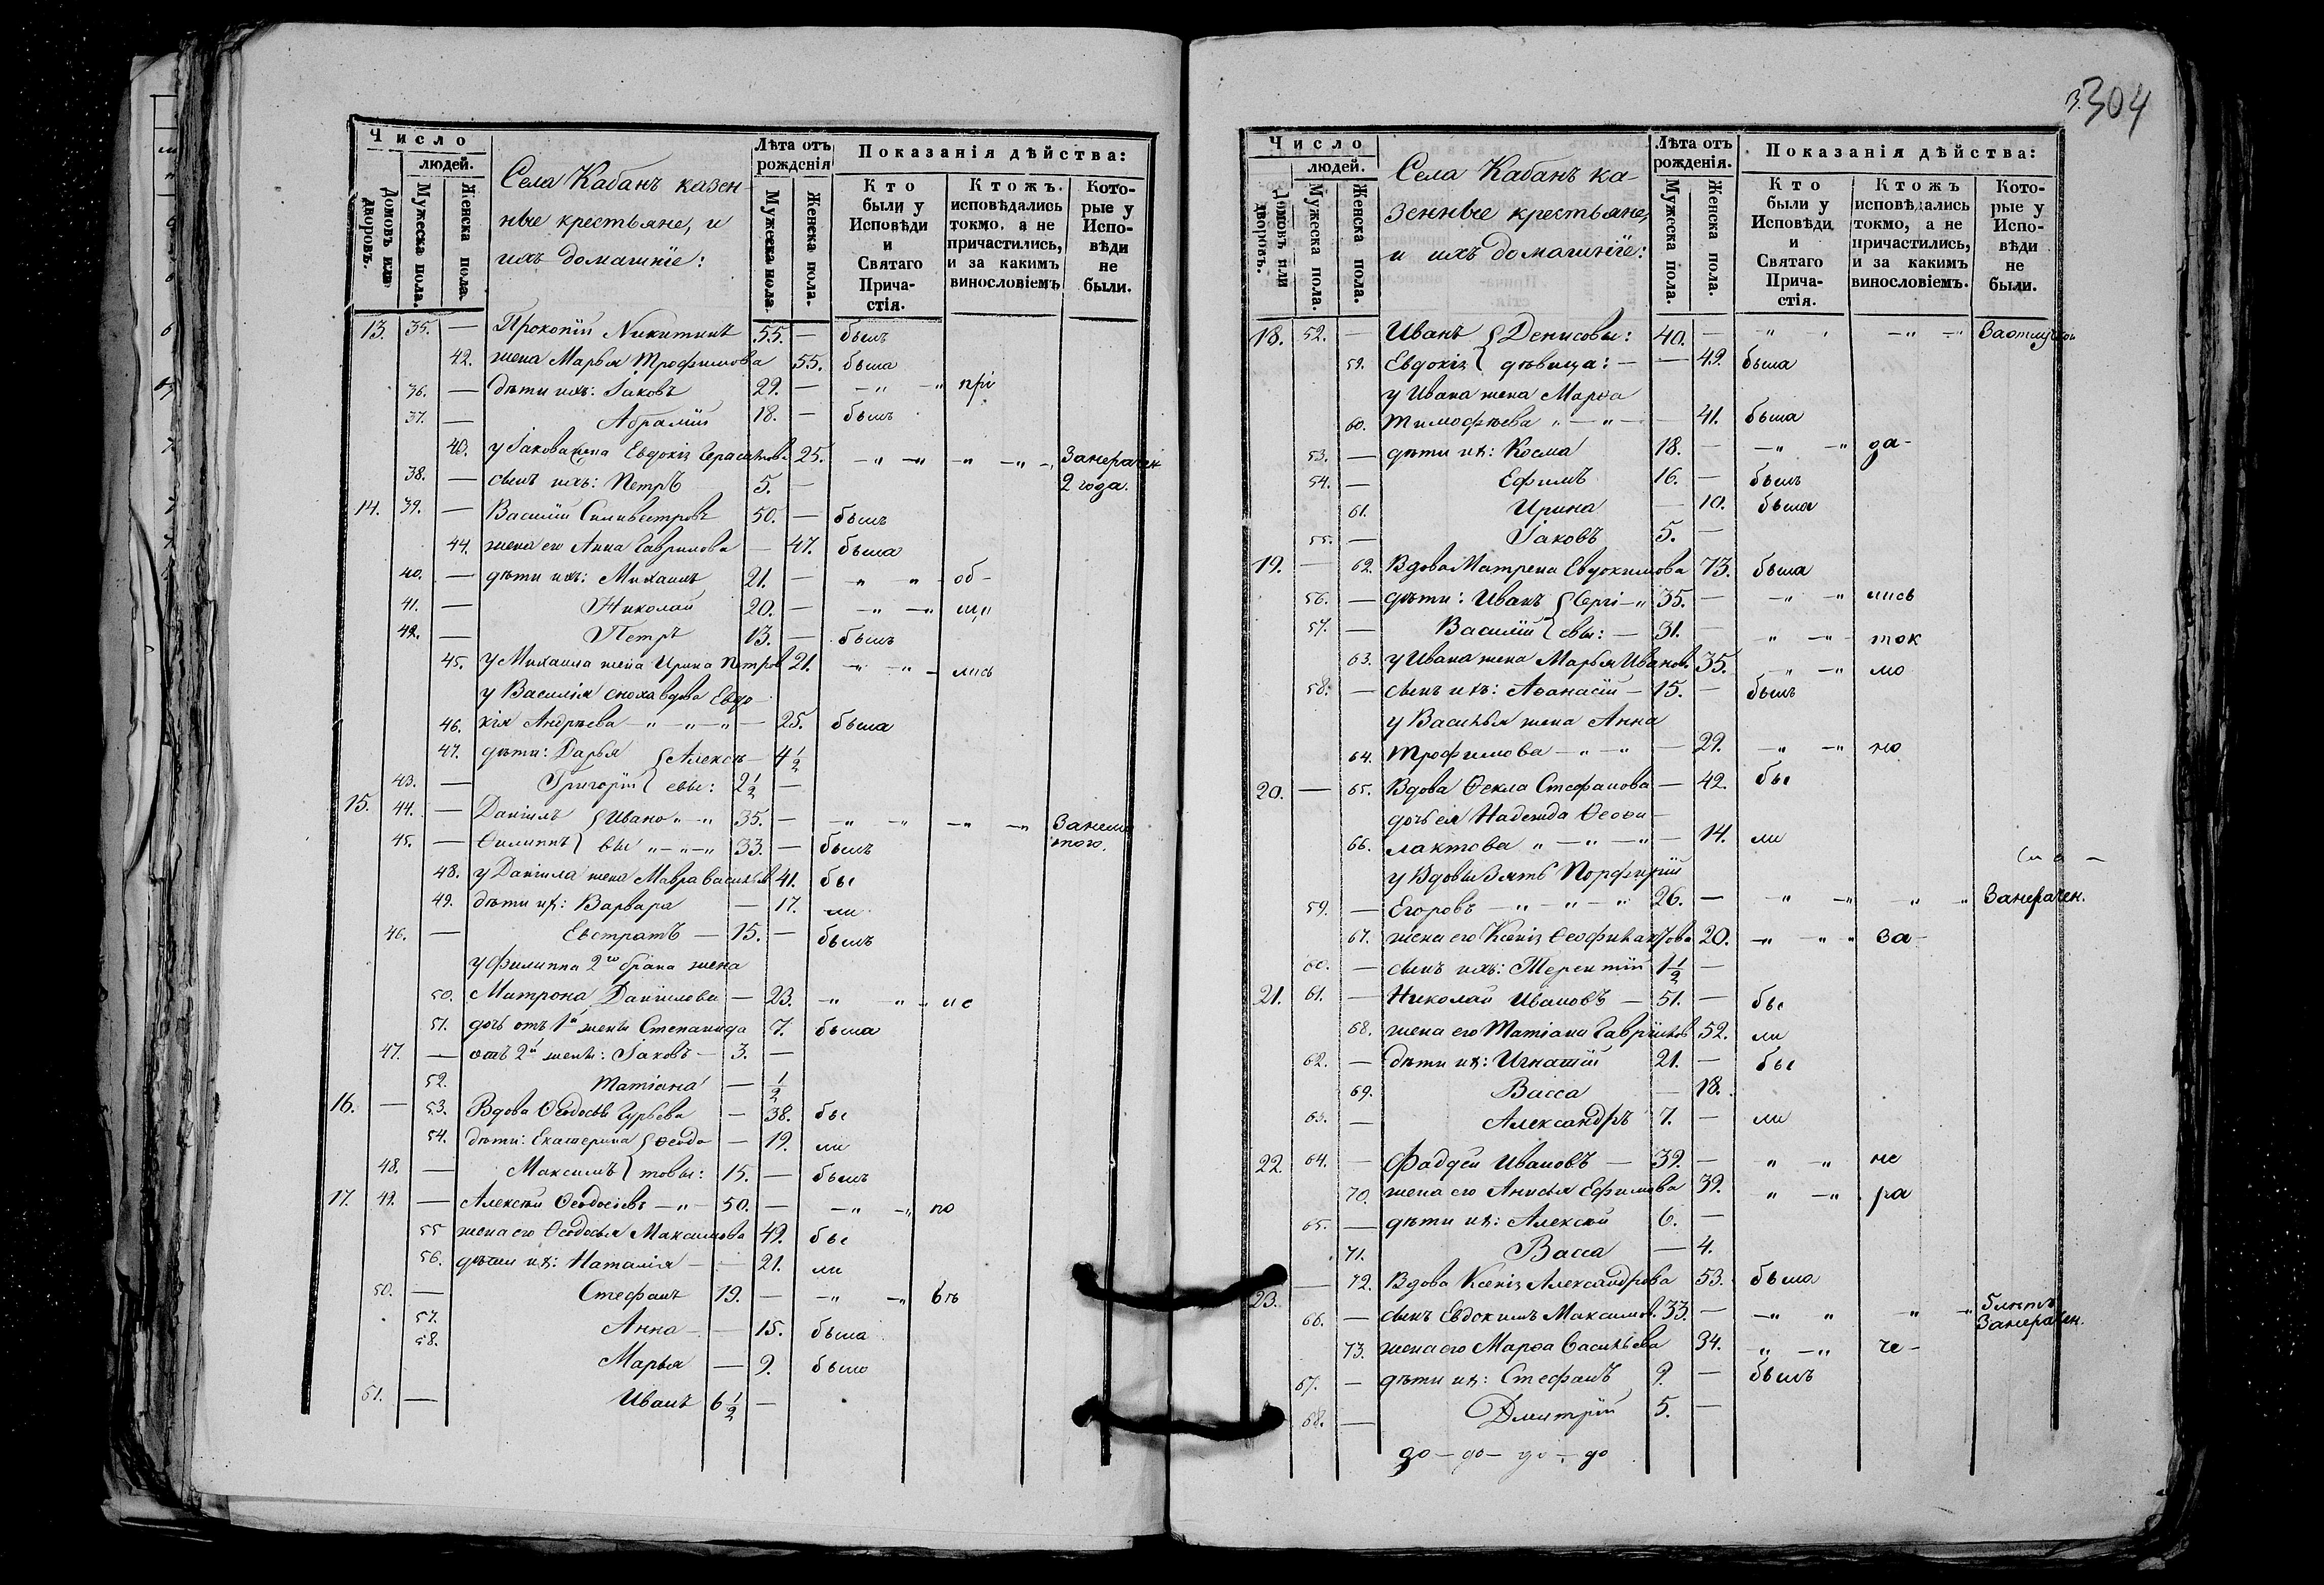 Число
людей.
Домовъ или дворовъ.
Мужеска пола.
Женска пола.
Села Кабанъ казен-
ные крестьяне, и
ихъ домашніе:
Лѣта отъ рожденія
Мужеска пола
Женска пола.
Показанія дѣйства:
Кто были у Исповѣди и Святаго Прича-стія.
Ктожъ. исповѣдались токмо, а не причастились, и за какимъ винословіемъ
Кото-рые у Испо-вѣди не были.
13. 35. — Прокопій Никитинъ 55. — былъ
42. жена Марья Трофимова 55. была
36. — дѣти ихъ: Іаковъ 29. — —„ —„ прі
37. — Абрамій 18. — былъ
43. у Іакова жена Евдокія Герасимова 25. —„ —„ —„ —„ — Занерачен
38. — сынъ ихъ: Петръ 5. — 2 года.
14. 39. — Василій Силивестровъ 50. — былъ
44. жена его Анна Гаврилова — 47. была
40. — дѣти ихъ: Михаилъ 21. — „ „ — об-
41. — Николай 20. — —„ —„ щи
42. — Петръ 13. — былъ
45. у Михаила жена Ирина Петров 21. —„ —„ — лись
у Василія сноха вдова Евдо-
46. кія Андреева —„ —„ —„ — 25. была
47. дѣти: Дарья { Алексѣ — 4 1/2
43. — Григорій { евы: 2 1/2 —
15. 44. — Даніилъ { Ивано „ —„ 35. — —„ —„ —„ —„
45. — Филиппъ { вы „ —„ —„ 33. — былъ
48. у Даніила жена Мавра Васильев 41. бы
49. дѣти их: Варвара — 17. ли
46. — Евстратъ — 15. — былъ
у Филиппа 2го брака жена
50. Матрона Даніилова — 23. —„ „ — ис
51. дочь отъ 1й жены Степанида 7. была
47. — отъ 2й жены: Іаковъ — 3. —
52. Татіана — 1/2
16. — 53. Вдова Ѳеодосья Гурьева — 38. бы
54. дѣти: Екатерина { Ѳеодо — 19. ли
48. — Максимъ { товы: 15. — былъ
17. 49. — Алексѣй Ѳеодосіевъ —„ — 50. — —„ —„ по
55 жена его Ѳеодосья Максимова 49. бы
56. дѣти их: Наталія — — 21. ли
50. — Стефанъ 19. — —„ —„ вѣ
57. Анна — 15. была
58. Марья — 9. была
51. — Иванъ 6 1/2 —
304
Число
людей.
Домовъ или дворовъ.
Мужеска пола.
Женска пола.
Села Кабанъ ка-
зенные крестьяне,
и ихъ домашніе:
Лѣта отъ рожденія.
Мужеска пола.
Женска пола.
Показанія дѣйства:
Кто были у Исповѣди и Святаго Прича-стія.
Ктожъ исповѣдались токмо, а не причастились, и за какимъ винословіемъ.
Кото-рые у Испо-вѣди не были.
18. 52. — Иванъ { Денисовы: 40. — „ „ —„ —„
59. Евдокія { дѣвица: — — 49. была
у Ивана жена Марѳа
60. Тимофѣева „ —„ — — 41. была
53. — дѣти их: Косма 18. — —„ —„ да-
54. — Ефимъ 16. — былъ
61. Ирина — 10. была
55. — Іаковъ 5. —
19. — 62. Вдова Матрена Евдокимова 73. была
56. — дѣти: Иванъ { Сергі —„ 35. — —„ —„ лись
57. — Василій { евы: — 31. — „ —„ ток
63. у Ивана жена Марья Иванов. 35. —„ —„ мо
58. — сынъ их: Аѳанасій — 15. — былъ
у Василья жена Анна
64. Трофимова —„ —„ — 29. —„ —„ но
20. — 65. Вдова Ѳекла Стефанова — 42. бы
дочь ея Надежда Ѳеофи-
66. лактова „ —„ —„ — 14. ли
у Вдовы зять Порфирій
59. — Егоровъ —„ —„ —„ 26. — —„ —„ „ „ Занерачен.
67. жена его Ксенія Ѳеофилактова 20. —„ —„ за-
60. — сынъ ихъ: Терентій 1 1/2 —
21. 61. — Николай Ивановъ — 51. — бы
68. жена его Татіана Гавріилов 52. ли
62. — дѣти их: Игнатій 21. — бы
69. Васса — 18.
63. — Александръ 7. — ли
22 64. — Фаддей Ивановъ — 39. — „ —„ не
70. жена его Анисья Ефимова 39. „ —„ ра
65. — дѣти их: Алексѣй 6. —
71. Васса — 4.
23. — 72. Вдова Ксенія Александрова 53. была
66. — сынъ Евдокимъ Максимов. 33. — —„ „ „ —„ 5 лѣтъ Занерачен.
73. жена его Марѳа Васильева 34. „ —„ че-
67. — дѣти их: Стефанъ 9. — былъ
68. — Дмитрій 5. —
до — до — до — до